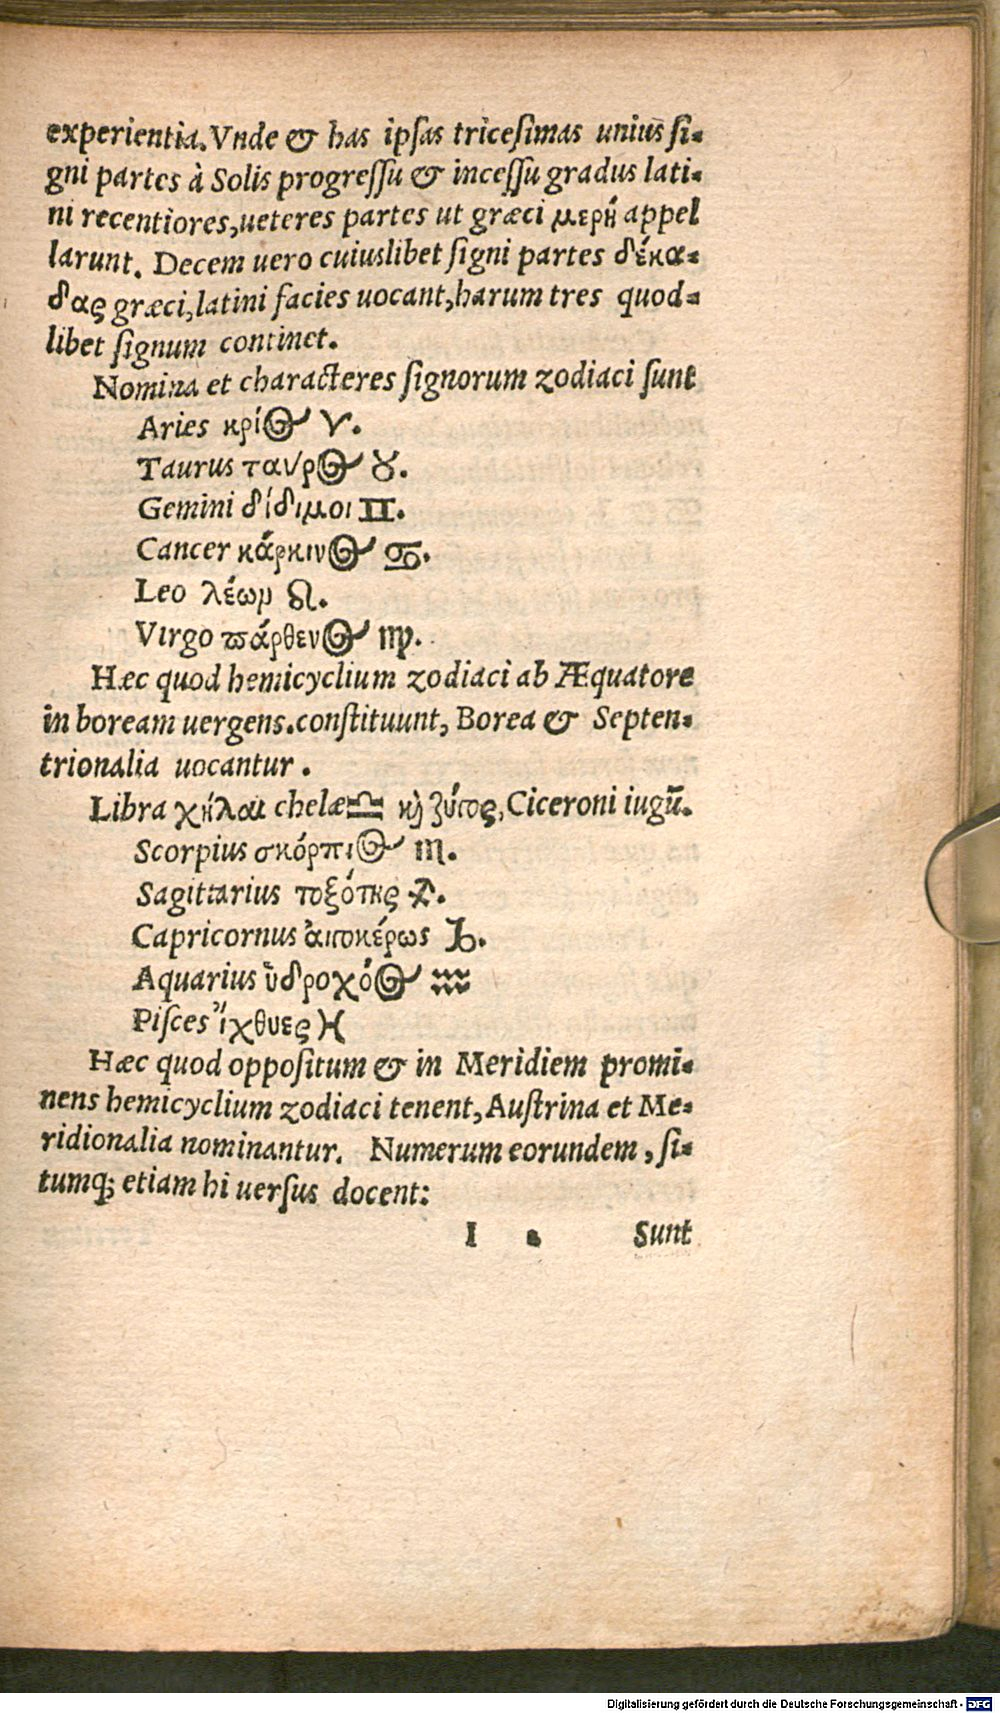 experientia. Vnde & has ipsas tricesimas unius si-
gni partes à Solis progressu & incessu gradus lati-
ni recentiores, ueteres partes ut græci μερή appel
larunt. Decem uero cuiuslibet signi partes δέκα-
δας græci, latini facies uocant, harum tres quod-
libet signum continet.
Nomina et characteres signorum zodiaci sunt
Aries κρίος ♈.
Taurus ταυρος ♉.
Gemini δίδιμοι ♊.
Cancer κάρκινος ♋.
Leo λέων ♌.
Virgo πάρθενος ♍.
Hæc quod hemicyclium zodiaci ab Æquatore
in boream uergens. constituunt, Borea & Septen-
trionalia uocantur.
Libra χήλαι chelæ ♎ κὶ ζύγος, Ciceroni iugū.
Scorpius σκόρπιος ♏.
Sagittarius τοξότης ♐.
Capricornus ἀιγοκέρως ♑.
Aquarius ὑδροχόος ♒
Pisces ἴχθυες ♓
Hæc quod oppositum & in Meridiem promi-
nens hemicyclium zodiaci tenent, Austrina et Me-
ridionalia nominantur. Numerum eorundem, si-
tumq; etiam hi uersus docent:
I 2 Sunt
Digitalisierung gefördert durch die Deutsche Forschungsgemeinschaft - DFG